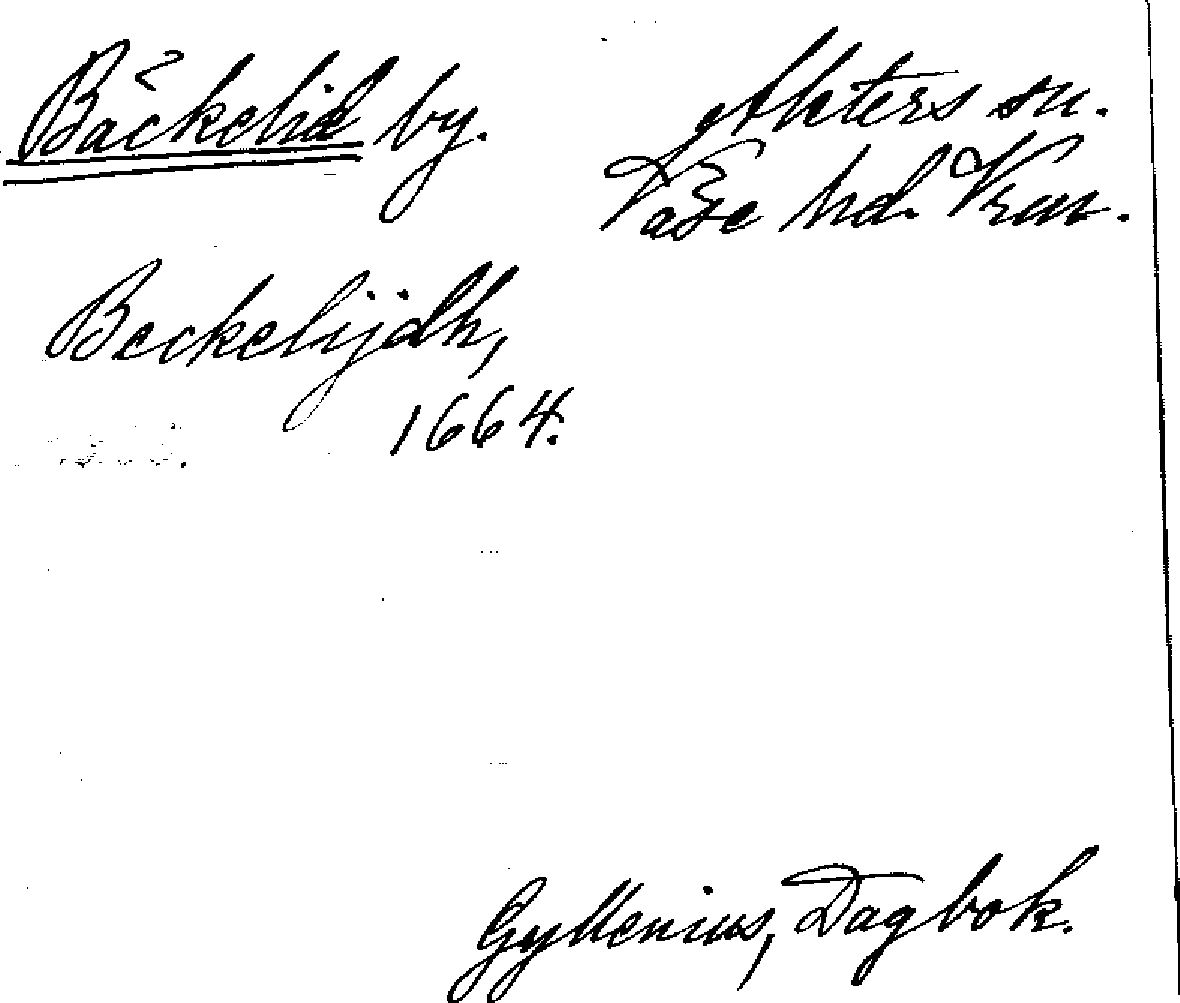 Bäckelid by.
Alsters sn.
Väse hd. Vrm.
Beckelijdh,
1664.
Gyllenius, Dagbok.